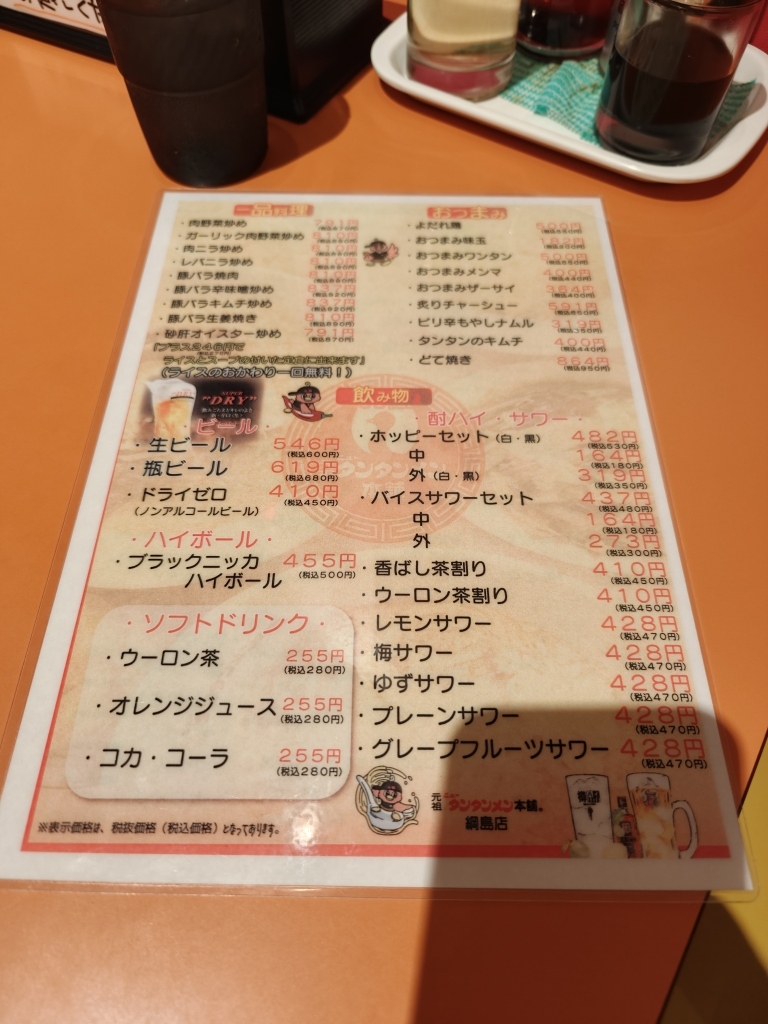 一品料理
・肉野菜炒め 791円
(税込870円)
・ガーリック肉野菜炒め 810円
・肉ニラ炒め 810円
・レバニラ炒め 810円
・豚バラ焼肉 810円
・豚バラ辛味噌炒め 837円
(税込920円)
・豚バラキムチ炒め 837円
(税込920円)
・豚バラ生姜焼き 810円
・砂肝オイスター炒め 791円
(税込870円)
「プラス248円で
ライスとスープの付いた定食に出来ます」
(ライスのおかわり一回無料！)
おつまみ
・よだれ鶏 500円
(税込550円)
・おつまみ味玉 182円
(税込200円)
・おつまみワンタン 500円
(税込550円)
・おつまみメンマ 400円
(税込440円)
・おつまみザーサイ 364円
(税込400円)
・炙りチャーシュー 591円
(税込650円)
・ピリ辛もやしナムル 319円
(税込350円)
・タンタンのキムチ 400円
(税込440円)
・どて焼き 864円
(税込950円)
飲み物
"DRY"
・ビール・
・生ビール 546円
(税込600円)
・瓶ビール 619円
(税込680円)
・ドライゼロ 410円
(ノンアルコールビール) (税込450円)
・ハイボール・
・ブラックニッカ 455円
ハイボール (税込500円)
・ソフトドリンク・
・ウーロン茶 255円
(税込280円)
・オレンジジュース 255円
(税込280円)
・コカ・コーラ 255円
(税込280円)
・酎ハイ・サワー・
・ホッピーセット(白・黒) 482円
(税込530円)
中 164円
(税込180円)
外(白・黒) 319円
(税込350円)
・バイスサワーセット 437円
(税込480円)
中 164円
(税込180円)
外 273円
(税込300円)
・香ばし茶割り 410円
(税込450円)
・ウーロン茶割り 410円
(税込450円)
・レモンサワー 428円
(税込470円)
・梅サワー 428円
(税込470円)
・ゆずサワー 428円
(税込470円)
・プレーンサワー 428円
(税込470円)
・グレープフルーツサワー 428円
(税込470円)
元祖 ニュータンタンメン本舗。
綱島店
※表示価格は、税抜価格（税込価格）となっております。